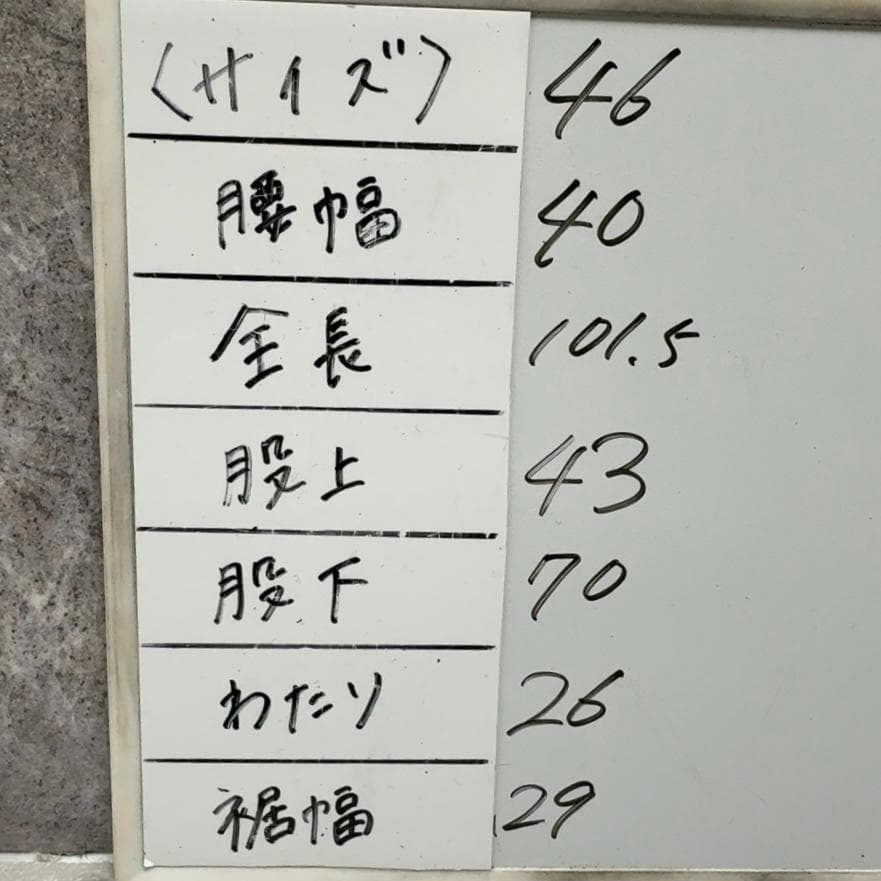 〈サイズ〉 46
腰幅 40
全長 101.5
股上 43
股下 70
わたり 26
裾幅 29